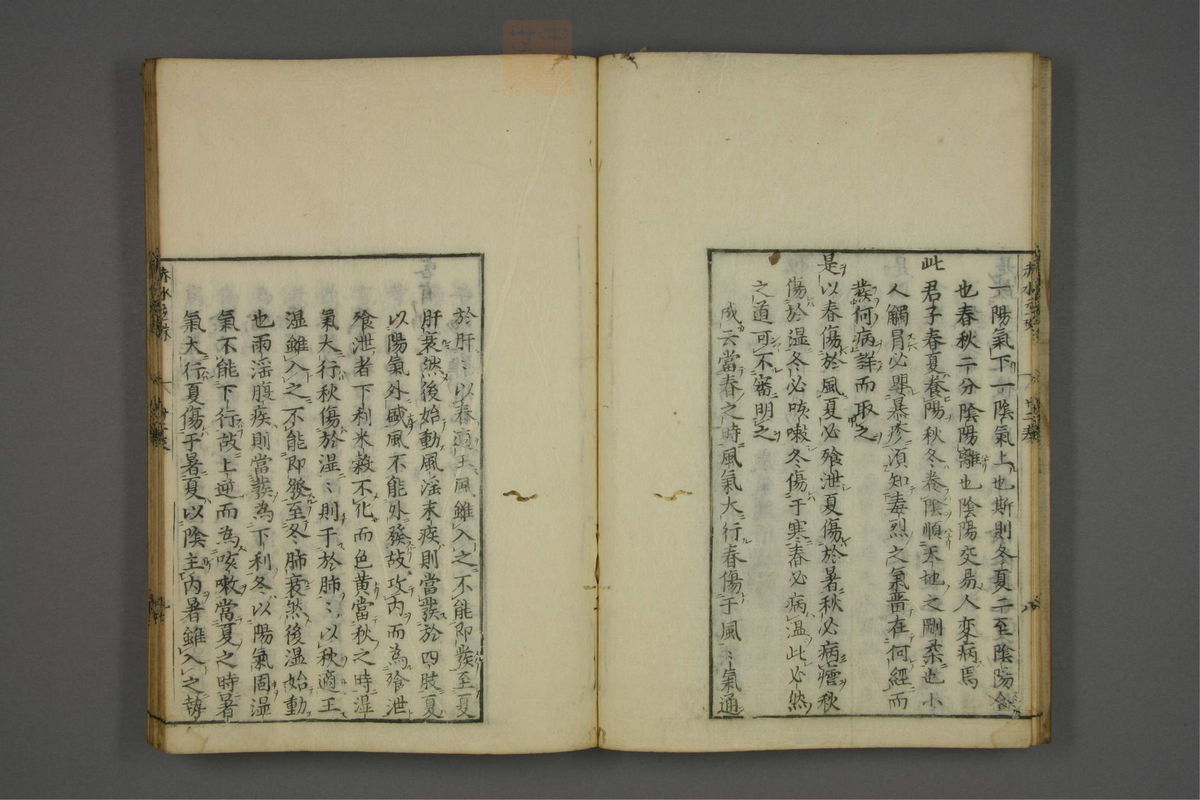 一陽氣下一陰氣上也斯則冬夏二至陰陽合
也春秋二分陰陽離也陰陽交易人変病焉
此君子春夏養陽秋冬養陰順天地之剛柔也小
人觸冒必嬰暴疹湏知毒烈之氣畱在何經而
發何病詳而取之
是以春傷於風夏必飱泄夏傷於暑秋必病瘧秋
傷於湿冬必咳嗽冬傷于寒春必病温此必然
之道可不審明之
成云當春之時風氣大行春傷于風〻氣通
於肝〻以春適王風雖入之不能即發至夏
肝衰然後始動風淫末疾則當發於四肢夏
以陽氣外盛風不能外發故攻内而為飱泄
飱泄者下利米穀不化而色黄當秋之時湿
氣大行秋傷於湿〻則干於肺〻以秋適王
湿雖入之不能即發至冬肺衰然後湿始動
也雨淫腹疾則當發為下利冬以陽氣固湿
氣不能下行故上逆而為咳嗽當夏之時暑
氣大行夏傷于暑夏以陰主内暑雖入之勢
赤水